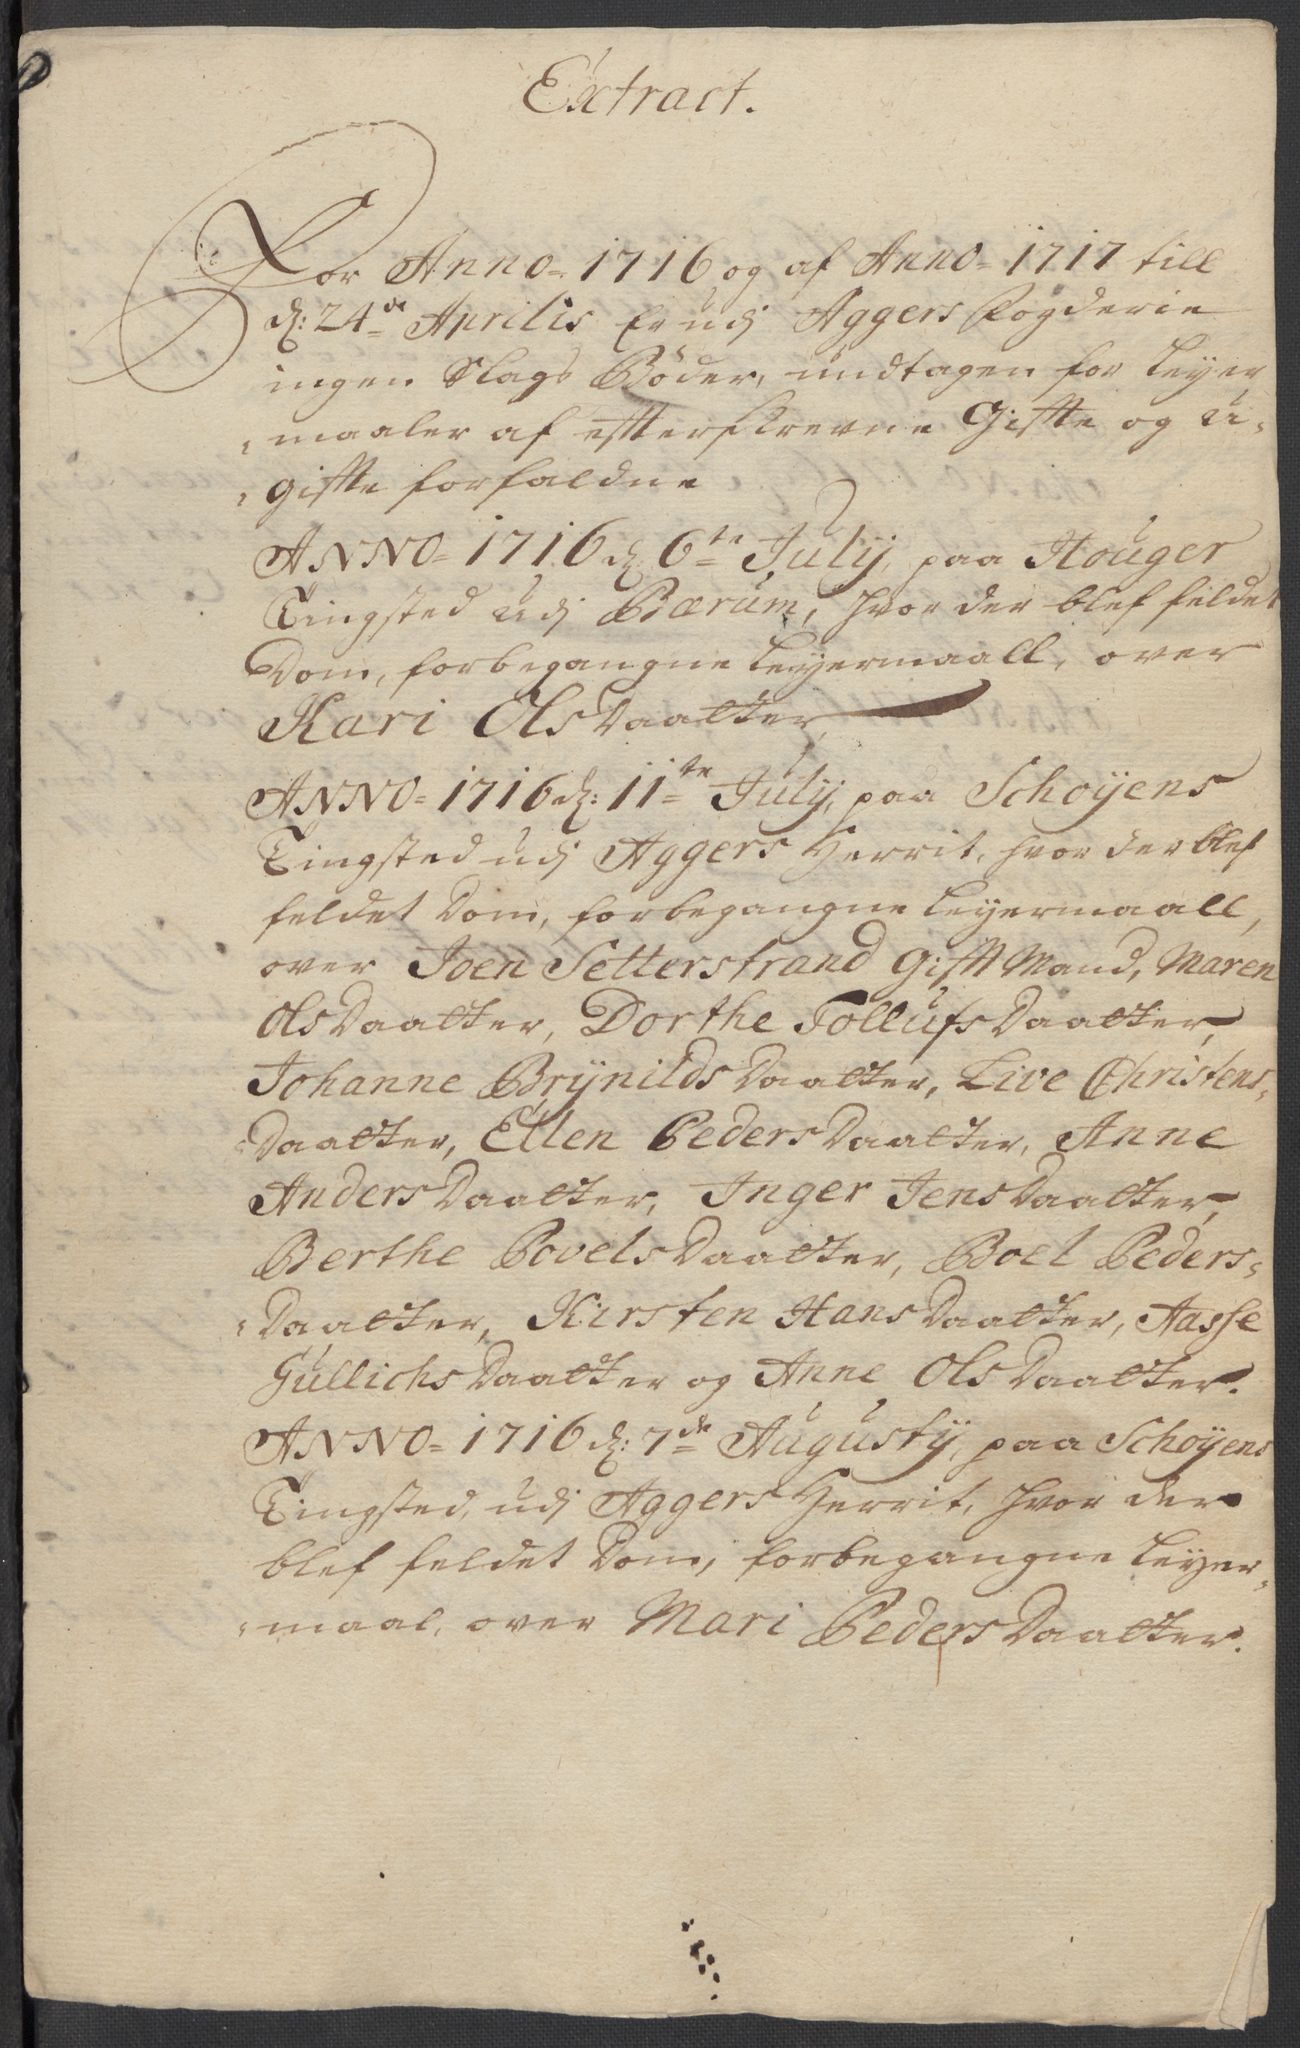 Extract.
For Anno= 1716 og af Anno= 1717 till
d: 24de Aprilis Er udj Aggers Fogderie
ingen Slags Böder, undtagen for Leyer
=maaler af effterskrevne Giffte og U=
=giffte forfaldne
ANNO= 1716 d: 6te Julij, paa Houger
Tingsted udj Bærum, hvor der blef feldet
Dom, forbegangne Leyermaall, over
Kari OlsDaatter,
ANNO= 1716 d: 11te Julij, paa Schoÿens
Tingsted udj Aggers Herrit, hvor der blef
feldet Dom, forbegangne Leyermaall,
over Joen Setterstrand Gifft Mand, Maren
OlsDaatter, Dorthe TollufsDaatter,
Johanne BrÿnildsDaatter, Live Christens=
=Daatter, Ellen PedersDaatter, Anne
AndersDaatter, Inger JensDaatter,
Berthe PovelsDaatter, Boel Peders=
=Daatter, Kirsten HansDaatter, Aasse
GullichsDaatter og Anne OlsDaatter.
ANNO= 1716 d: 7de Augustij, paa Schoÿens
Tingsted, udj Aggers Herrit, hvor der
blef feldet Dom, forbegangne Leyer=
=maal, over Mari PedersDaatter.